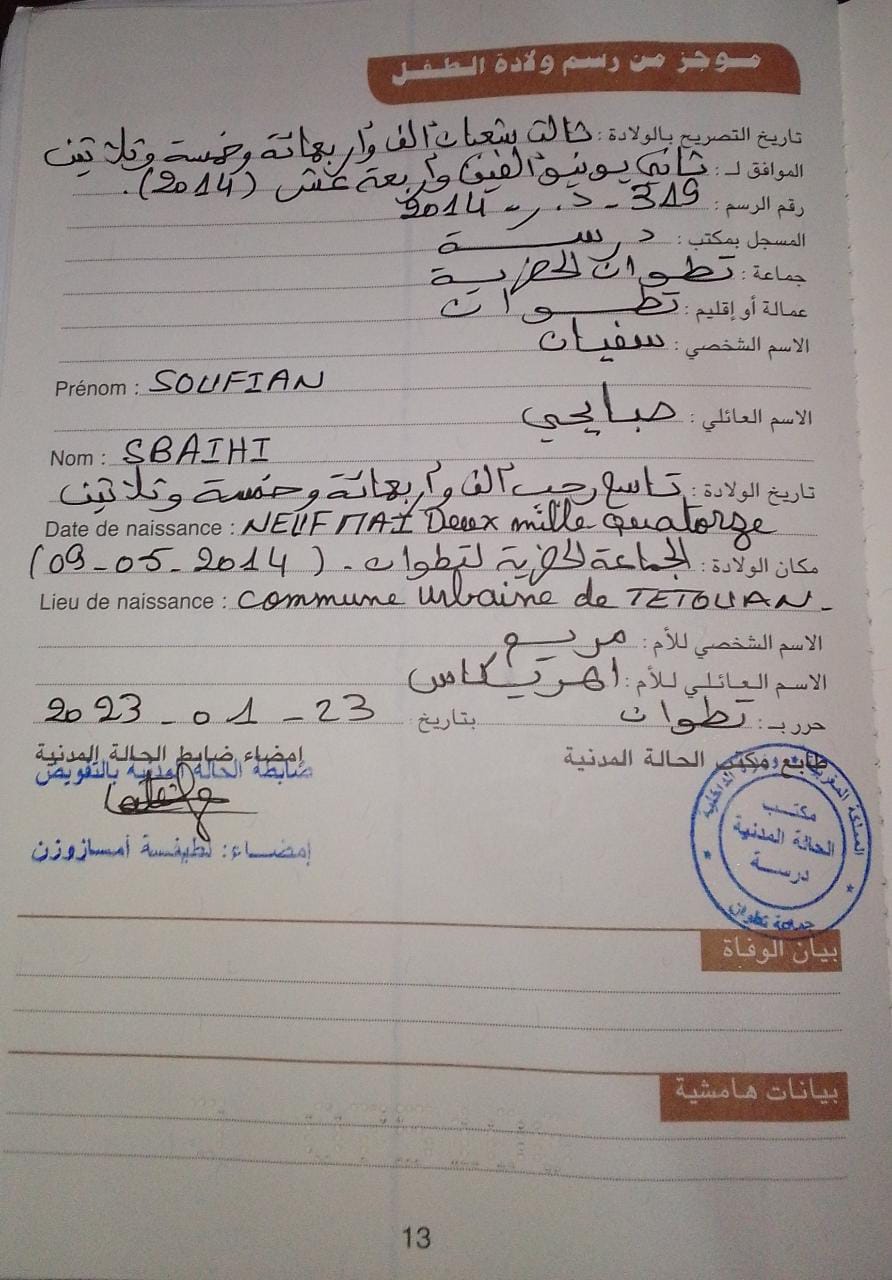 موجز من رسم ولادة الطفل
تاريخ التصريح بالولادة : ثالث شعبان ألف وأربعمائة وخمسة وثلاثين
الموافق لـ : ثاني يونيو ألفين وأربعة عشر (2014).
رقم الرسم : 319 - د. ر - 2014
المسجل بمكتب : درسة
جماعة : تطوان الحضرية
عمالة أو إقليم : تطوان
الاسم الشخصي : سفيان
Prénom : SOUFIAN
الاسم العائلي : صبايحي
Nom : SBAIHI
تاريخ الولادة : تاسع رجب ألف وأربعمائة وخمسة وثلاثين
Date de naissance : NEUF MAI Deux mille quatorze
مكان الولادة : الجماعة الحضرية لتطوان - (09-05-2014)
Lieu de naissance : Commune urbaine de TETOUAN -
الاسم الشخصي للأم : مريم
الاسم العائلي للأم : اهريكاس
حرر بـ : تطوان بتاريخ : 23 - 01 - 2023
طابع مكتب الحالة المدنية إمضاء ضابط الحالة المدنية
ضابطة الحالة المدنية بالتفويض
إمضاء : لطيفة أمسازوزن
المملكة المغربية وزارة الداخلية
مكتب
الحالة المدنية
درسة
جماعة تطوان
بيان الوفاة
بيانات هامشية
13